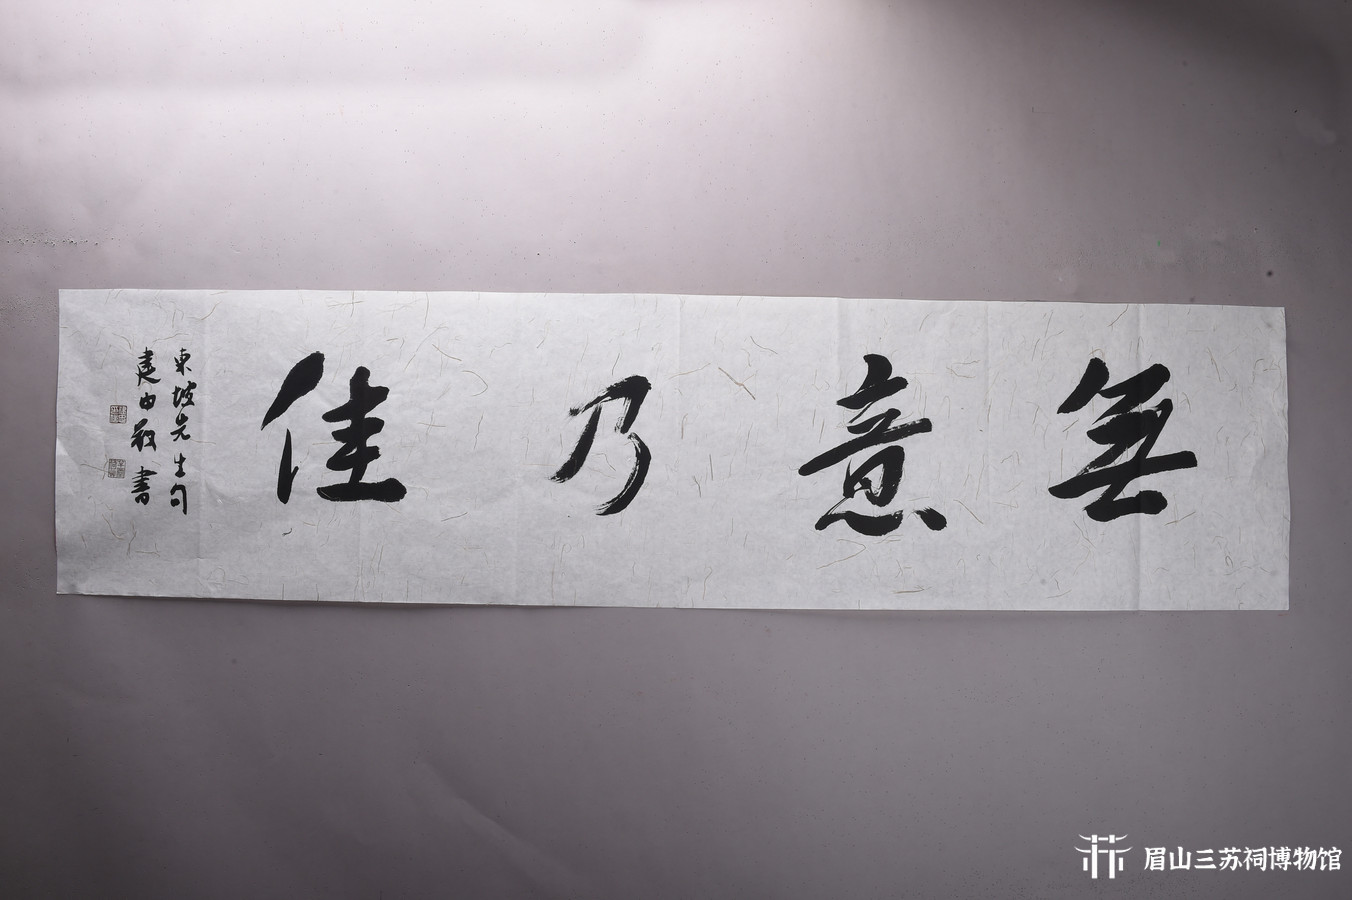 無意乃佳
東坡先生句
建由敬書
眉山三苏祠博物馆